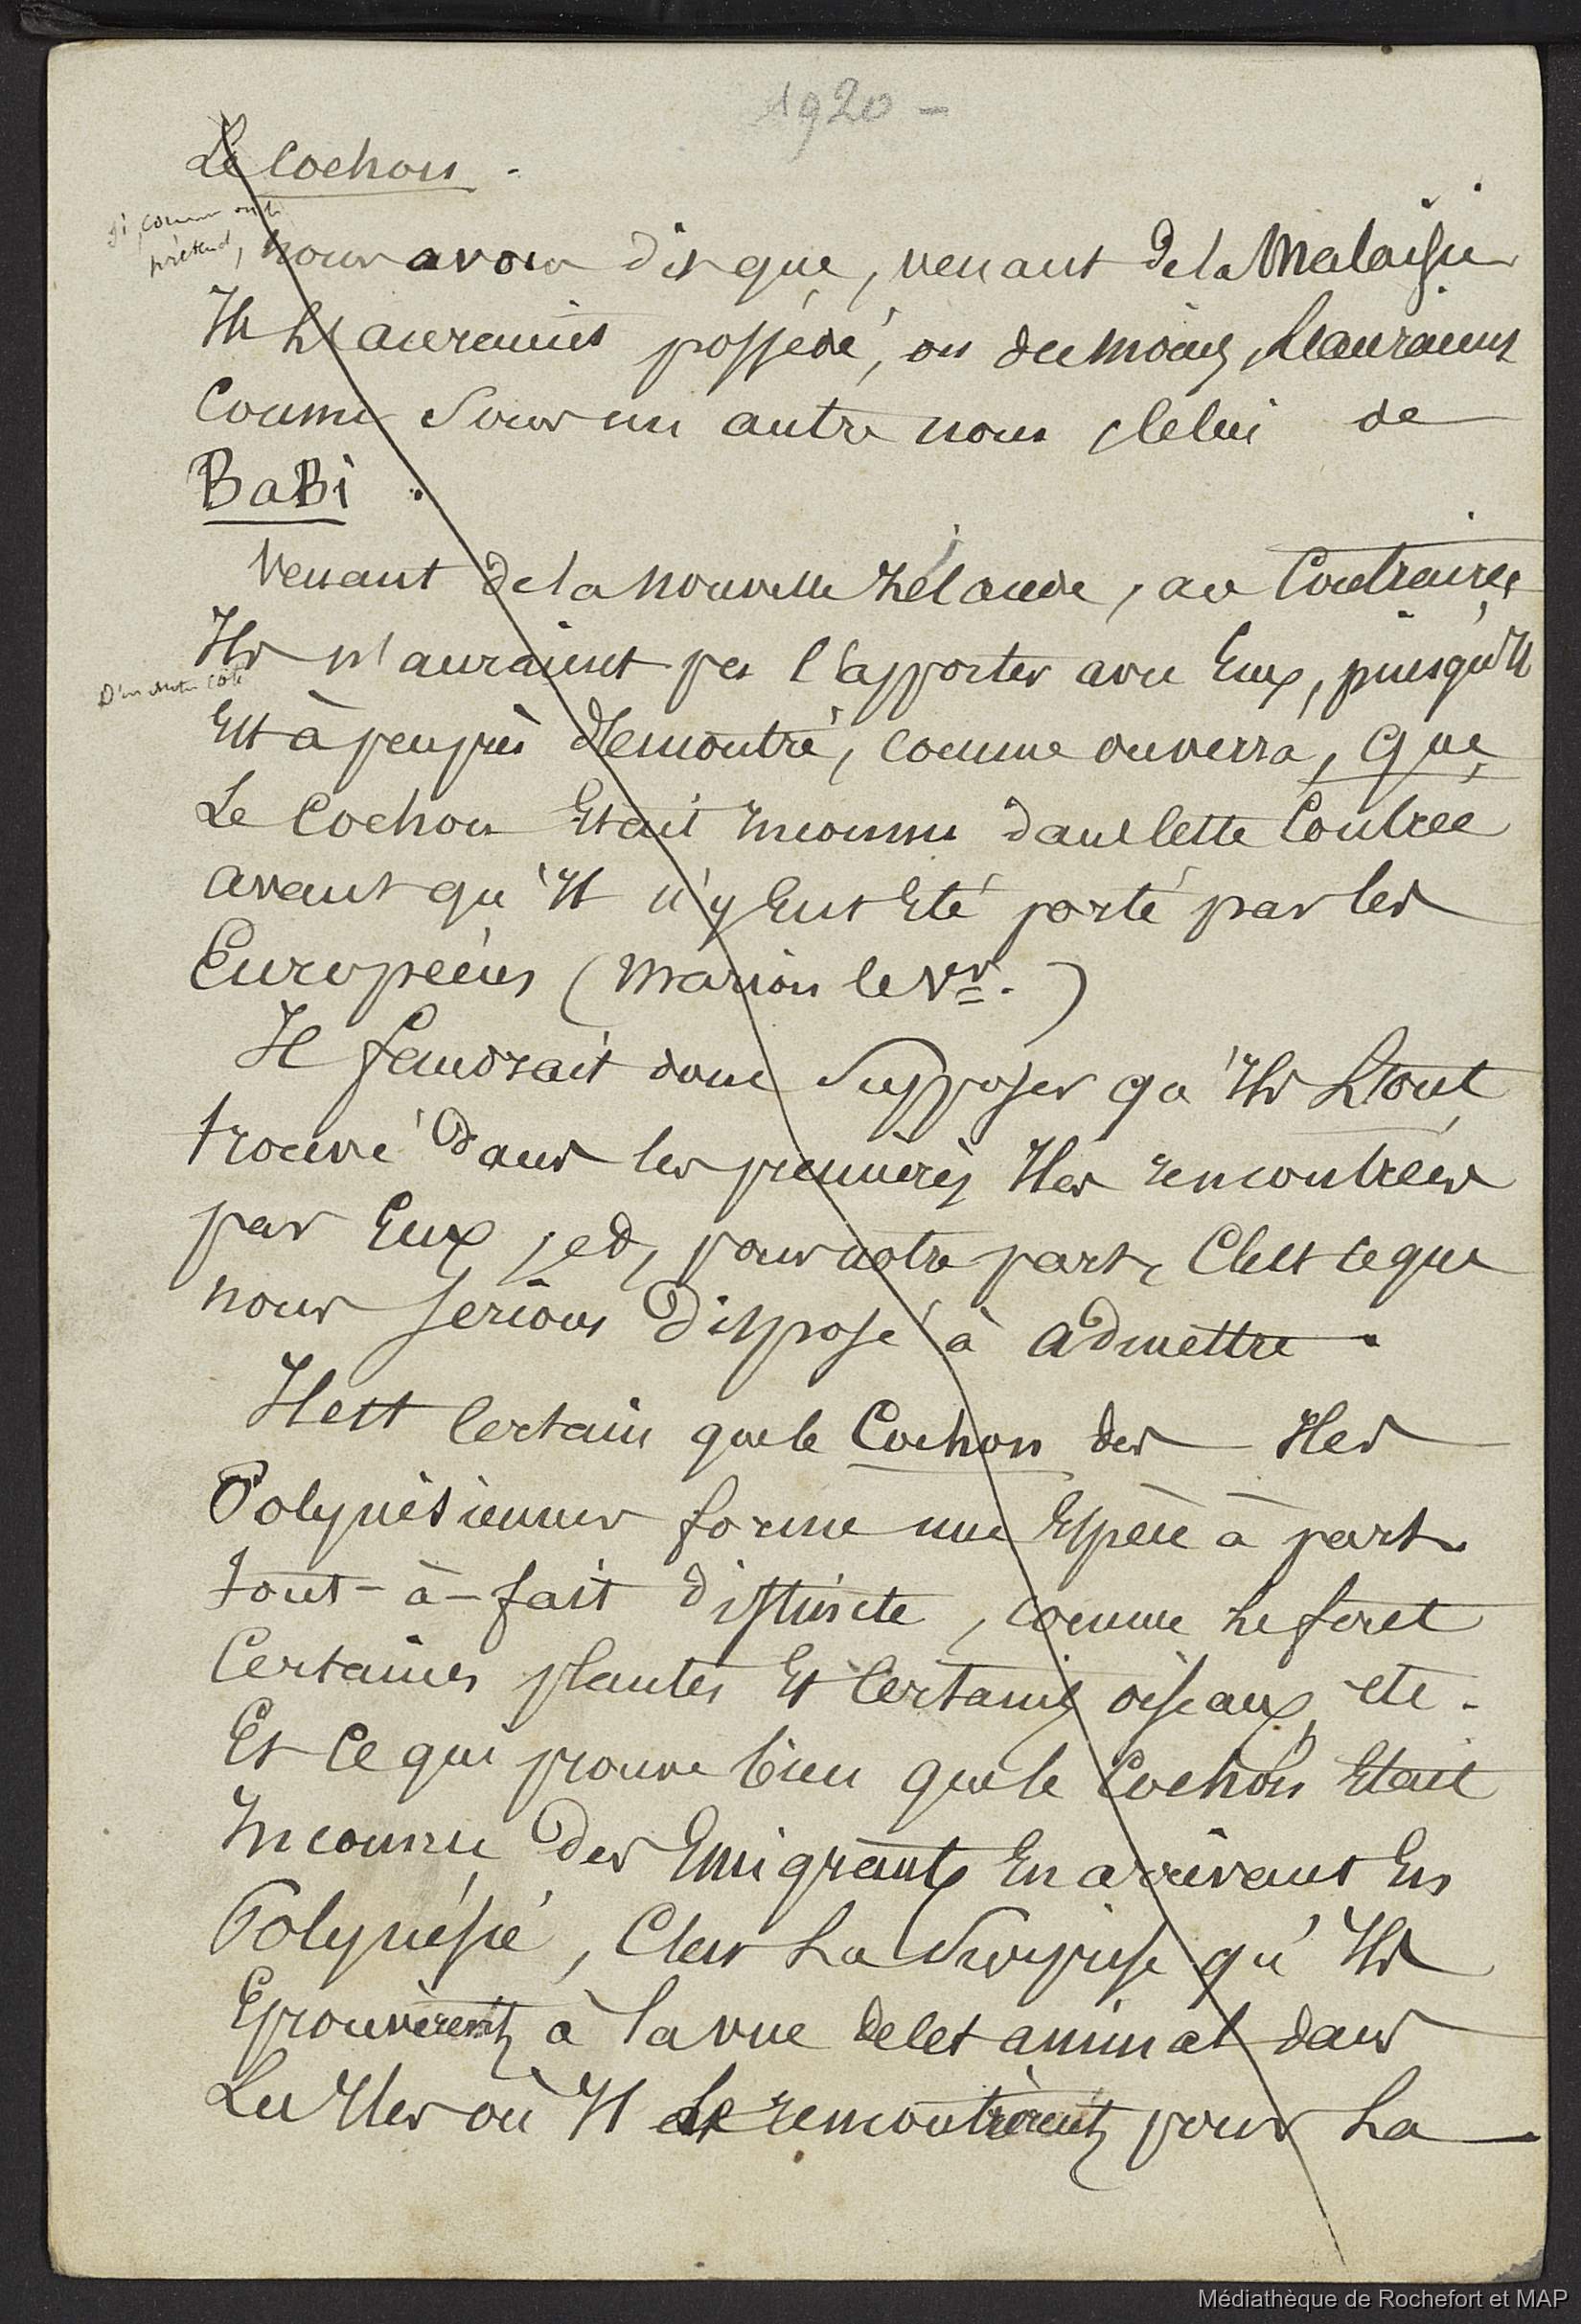 1920 -
Le Cochon.
Si, comme on le
prétend,
nous avons dit que, venant de la Malaisie
Ils l'auraient possédé, ou du moins l'auraient
Connu sous un autre nom, Celui de
BaBi.
Venant de la Nouvelle Zélande, au Contraire,
Ils n'auraient pu l'apporter avec Eux, puisqu'Il
D'un autre côté
Est à peu près démontré, comme on verra, que,
Le Cochon Etait Inconnu dans Cette Contrée
avant qu'Il n'y Eut Eté porté par les
Européens (Marion le Vr.)
Il faudrait donc Supposer qu'Ils L'ont
trouvé dans les premières Iles rencontrées
par Eux, et, pour notre part, C'est ce que
nous serions disposé à admettre.
Il est Certain que le Cochon des Iles
Polynésiennes forme une Espèce à part
tout-à-fait distincte, comme le font
Certaines plantes Et Certains oiseaux, etc.
Et Ce qui prouve bien que le Cochon Etait
Inconnu des Emigrants En arrivant En
Polynésie, C'est La Surprise qu'Ils
Eprouvèrent à la vue de Cet animal dans
Les Iles où Il le rencontrèrent pour La
Médiathèque de Rochefort et MAP